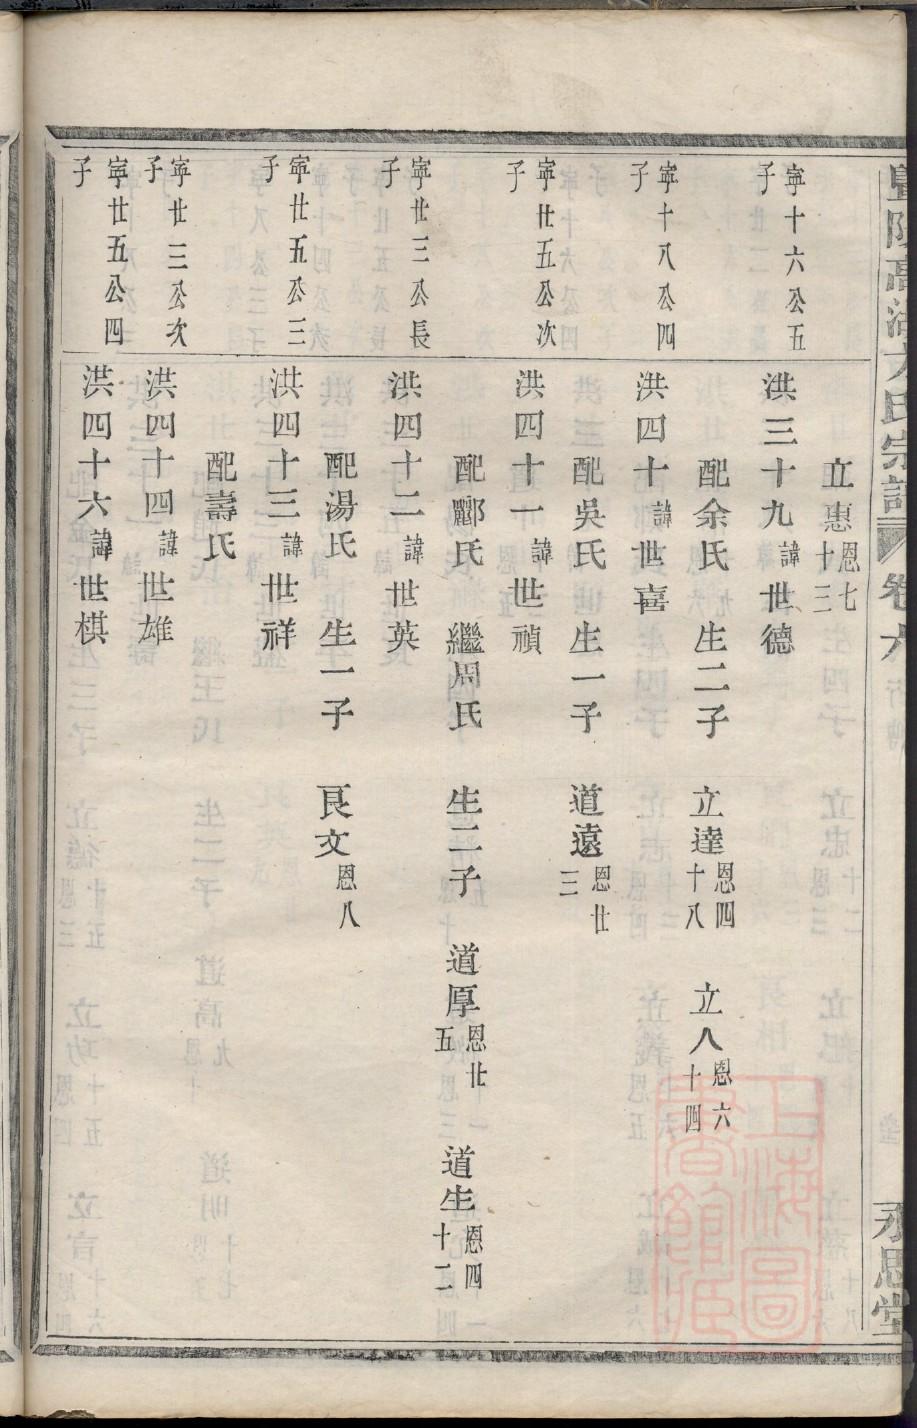 暨陽高湖方氏宗譜 卷六 行傳 永思堂
立惠恩七十三
寧十六公五子
洪三十九諱世德
配余氏 生二子 立達恩四十八 立人恩六十四
寧十八公四子
洪四十諱世喜
配吳氏 生一子 道遠恩廿三
寧廿五公次子
洪四十一諱世禎
配酈氏 繼周氏 生二子 道厚恩廿五 道生恩四十二
寧廿三公長子
洪四十二諱世英
配湯氏 生一子 良文恩八
寧廿五公三子
洪四十三諱世祥
配壽氏
寧廿三公次子
洪四十四諱世雄
寧廿五公四子
洪四十六諱世棋